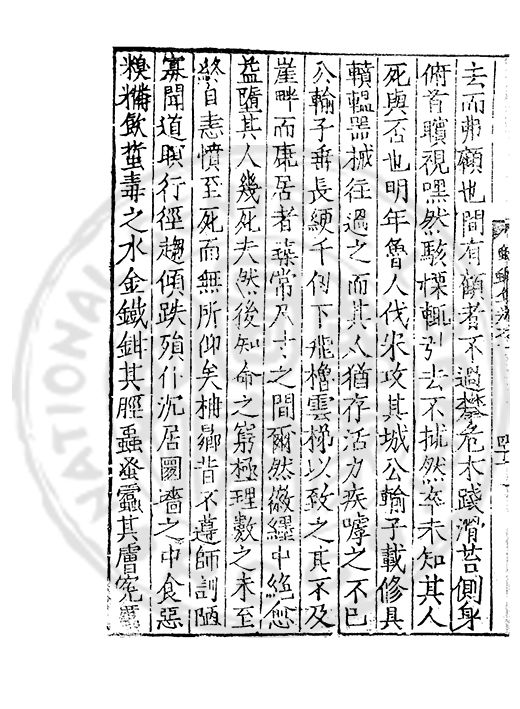 去而弗顧也間有顧者不過攀危木踐滑苔側身
俯首矉視嘿然駭慄輒引去不拔然卒未知其人
死與否也明年魯人伐宋攻其城公輸子載修具
轒轀器械往過之而其人猶存活力疾嘑之不已
公輸子垂長綆千仞下飛櫓雲梯以致之其不及
崖畔而康居者尋常尺寸之間爾然徽纆中絶愈
益墮其人幾死夫然後知命之窮極理數之未至
終自恚憤至死而無所仰矣柟曏昔不遵師訓陋
寡聞道暝行徑趨傾跌殞仆沉居圜牆之中食惡
糗糒飲蜇毒之水金鐵鉗其脛蝨蚤靁其膚冤
NATIONAL